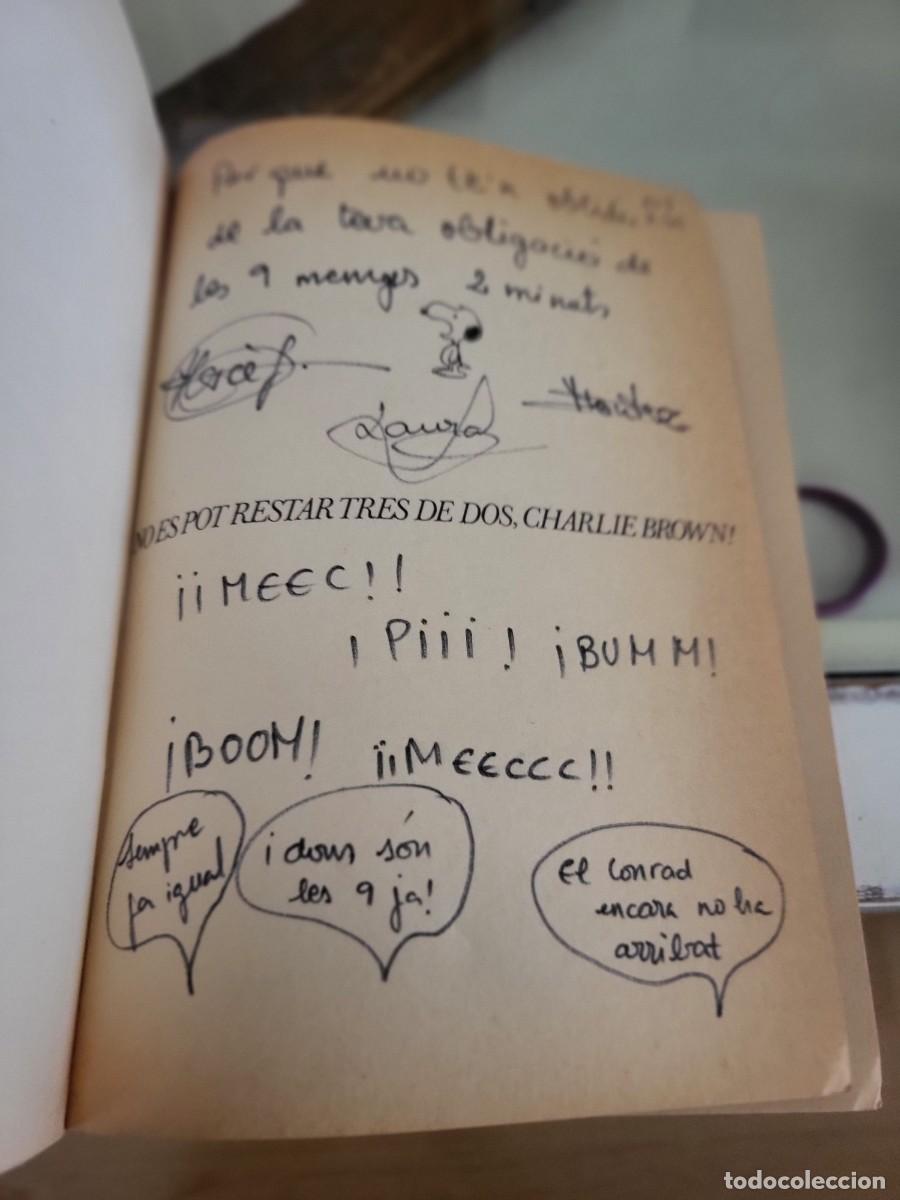 Per que no te'n oblidis
de la teva obligació de
les 9 menys 2 minuts
Laura
NO ES POT RESTAR TRES DE DOS, CHARLIE BROWN!
¡¡MEEC!!
¡Piiii! ¡BUMM!
¡BOOM! ¡¡MEECCC!!
Sempre
fa igual
¡dous són
les 9 ja!
El Conrad
encara no ha
arribat
todocoleccion